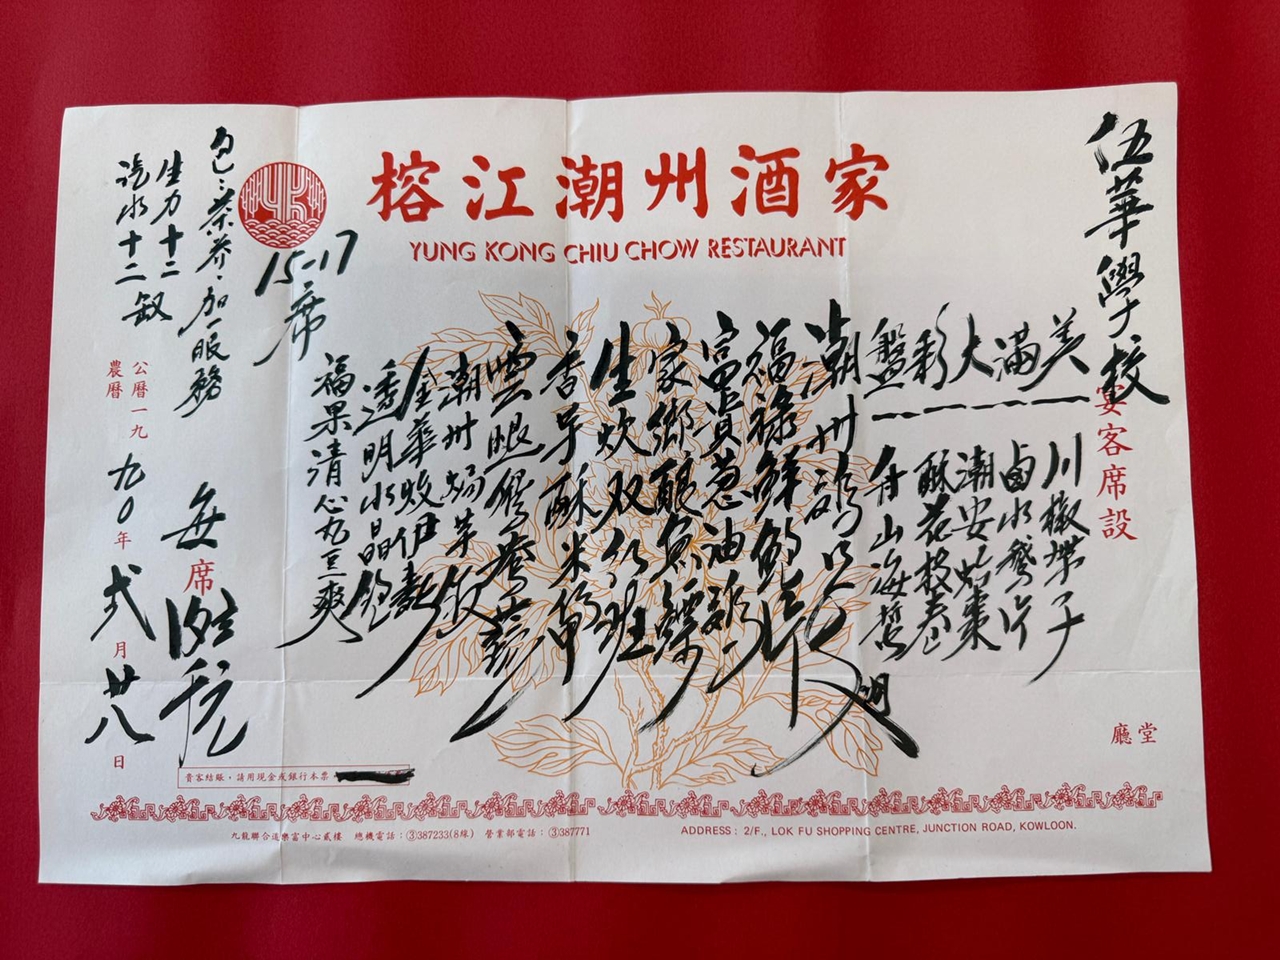 榕江潮州酒家
YUNG KONG CHIU CHOW RESTAURANT
伍華學校
宴客席設
廳堂
美滿大彩盤
川椒帶子
鹵水鵝片
潮安虾棗
酥花枝卷
舟山海蜇
潮州
福祿鮮鮑片
富貴葱油雞
家鄉釀魚鰾
生炊双紅班
香芋酥米鴨
雲眼
潮州焗羊
金華炆伊麵
透明水晶飽
福果清心九豆爽
15-17席
每席
包:茶芥·加一服務
生力十二
汽水十二
公曆一九九0年弍月廿八日
農曆
貴客結賬·請用現金或銀行本票
九龍聯合道樂富中心貳樓 總機電話:③387233(8線) 營業部電話:③387771
ADDRESS: 2/F., LOK FU SHOPPING CENTRE, JUNCTION ROAD, KOWLOON.